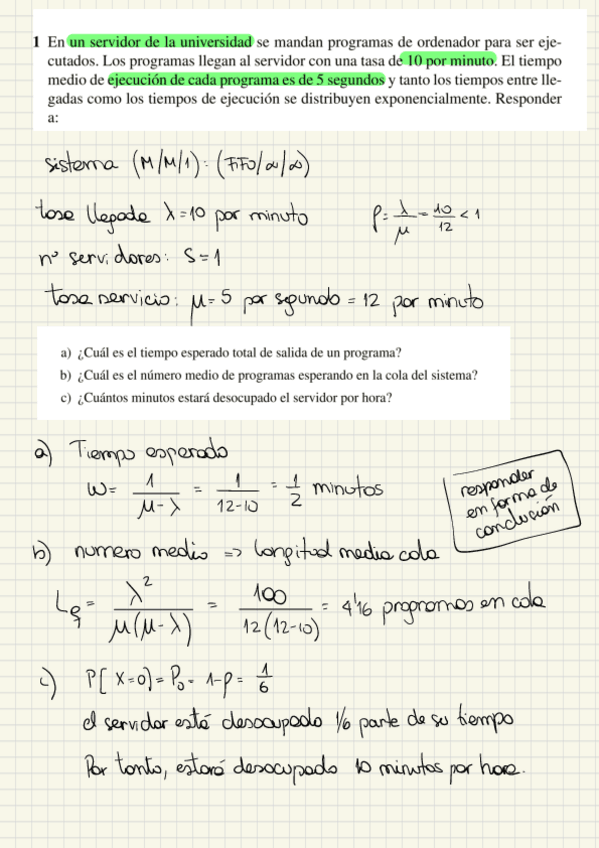 1 En un servidor de la universidad se mandan programas de ordenador para ser eje-
cutados. Los programas llegan al servidor con una tasa de 10 por minuto. El tiempo
medio de ejecución de cada programa es de 5 segundos y tanto los tiempos entre lle-
gadas como los tiempos de ejecución se distribuyen exponencialmente. Responder
a:
sistema (M/M/1):(FIFO/∞/∞)
tasa llegada λ=10 por minuto ρ= λ/μ = 10/12 < 1
nº servidores: S=1
tasa servicio: μ=5 por segundo = 12 por minuto
a) ¿Cuál es el tiempo esperado total de salida de un programa?
b) ¿Cuál es el número medio de programas esperando en la cola del sistema?
c) ¿Cuántos minutos estará desocupado el servidor por hora?
a) Tiempo esperado
W= 1/(μ-λ) = 1/(12-10) = 1/2 minutos
responder
en forma de
conclusión
b) numero medio => longitud media cola
Lq= λ²/(μ(μ-λ)) = 100/(12(12-10)) = 4'16 programas en cola
c) P[X=0]=P₀= 1-ρ= 1/6
el servidor está desocupado 1/6 parte de su tiempo
Por tanto, estará desocupado 10 minutos por hora.